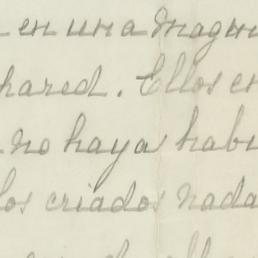 en una magn
hared. Ellos en
no haya habi
los criados nada